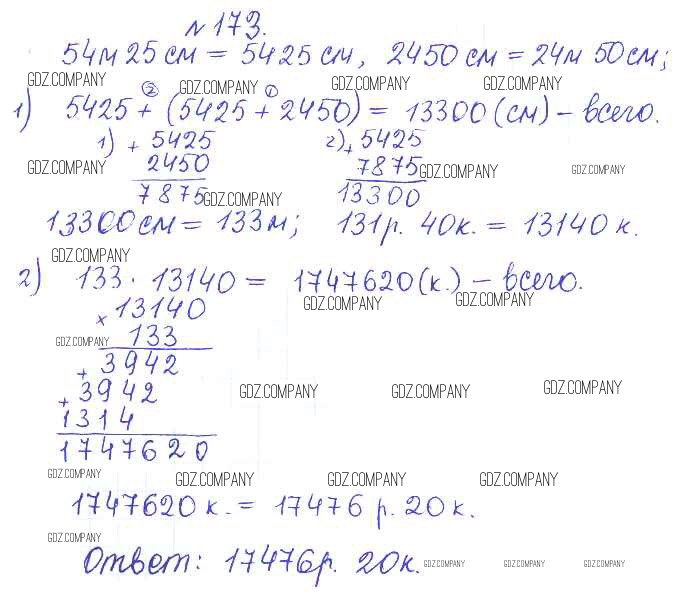 № 173.
54м 25 см = 5425 см, 2450 см = 24м 50см;
GDZ.COMPANY GDZ.COMPANY GDZ.COMPANY GDZ.COMPANY
② ①
1) 5425 + (5425 + 2450) = 13300 (см) – всего.
1) + 5425 2) + 5425
2450 7875
GDZ.COMPANY GDZ.COMPANY GDZ.COMPANY
7875 13300
GDZ.COMPANY
13300 см = 133 м; 131 р. 40 к. = 13140 к.
GDZ.COMPANY
2) 133 · 13140 = 1747620 (к.) – всего.
GDZ.COMPANY GDZ.COMPANY
× 13140
133
GDZ.COMPANY
+ 3942
+ 3942
GDZ.COMPANY GDZ.COMPANY GDZ.COMPANY
1314
1747620
GDZ.COMPANY GDZ.COMPANY GDZ.COMPANY GDZ.COMPANY
1747620 к. = 17476 р. 20 к.
GDZ.COMPANY
Ответ: 17476 р. 20 к.
GDZ.COMPANY GDZ.COMPANY GDZ.COMPANY